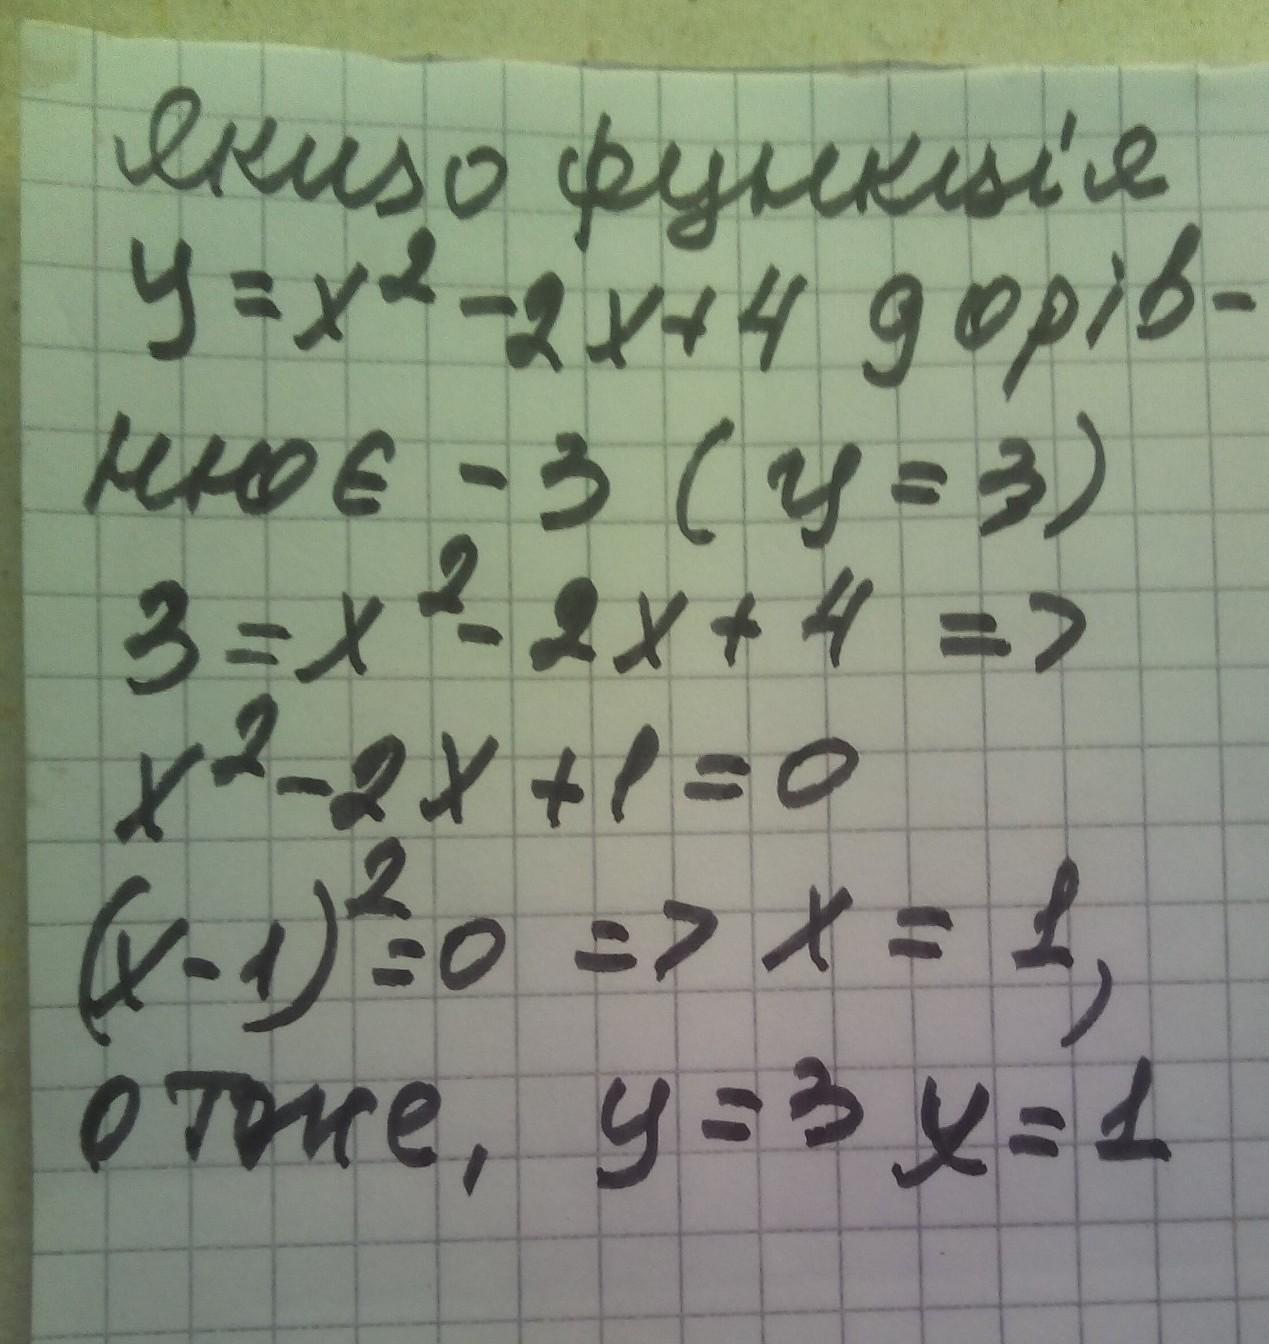 Якщо функція
y = x² - 2x + 4 дорів-
нює - 3 ( y = 3 )
3 = x² - 2x + 4 =>
x² - 2x + 1 = 0
(x - 1)² = 0 => x = 1,
отже, y = 3 x = 1